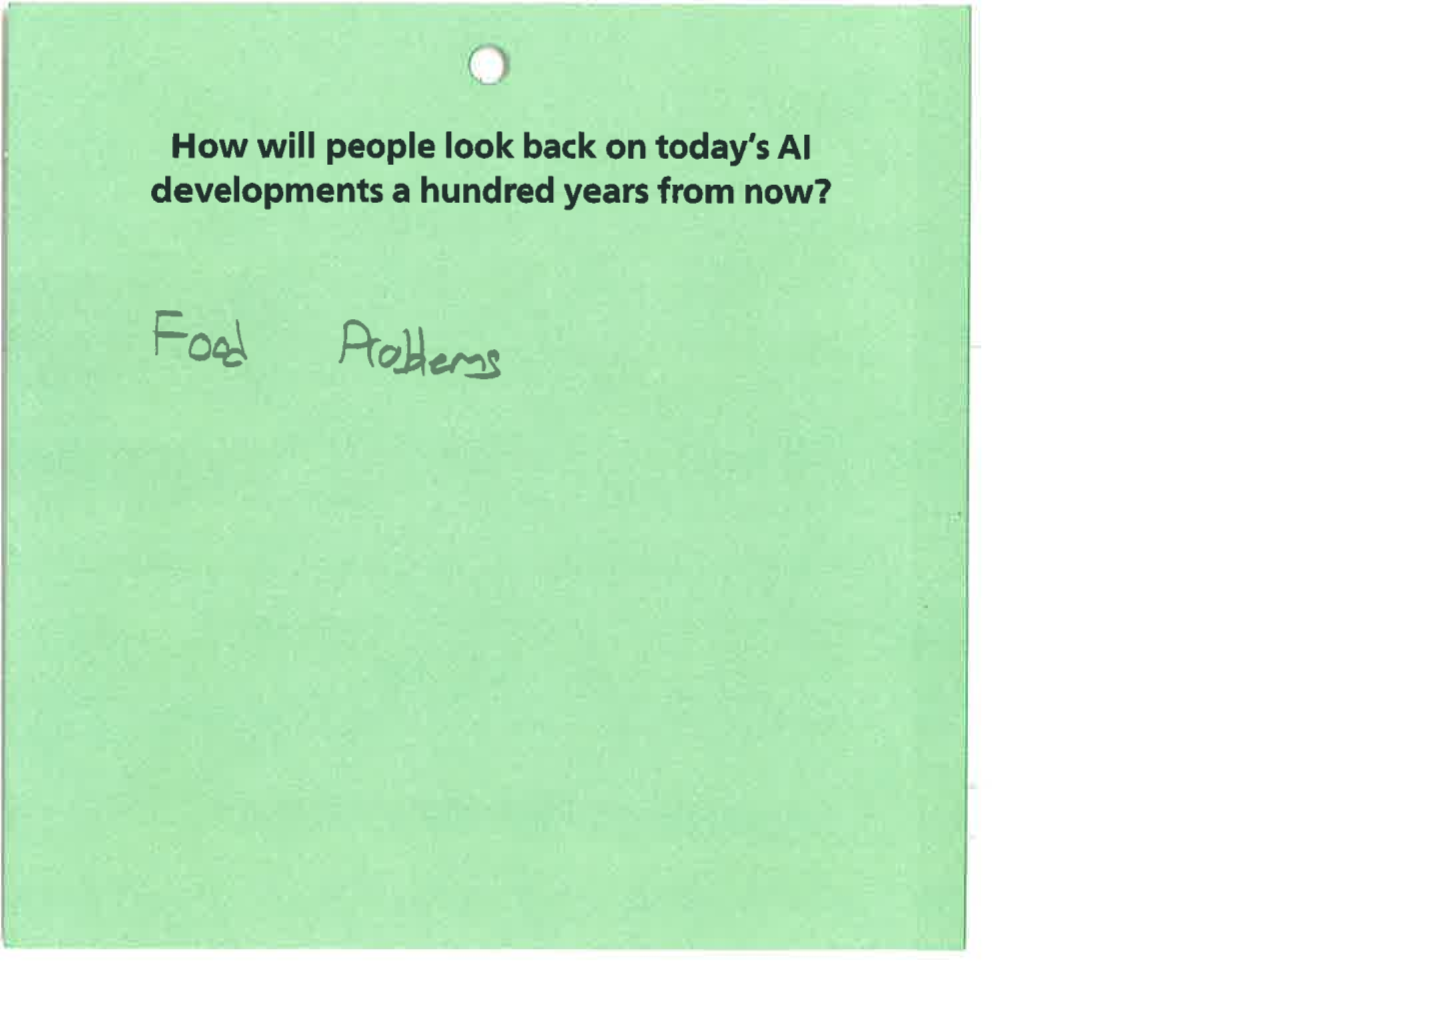 How will people look back on today's AI
developments a hundred years from now?
Food Problems